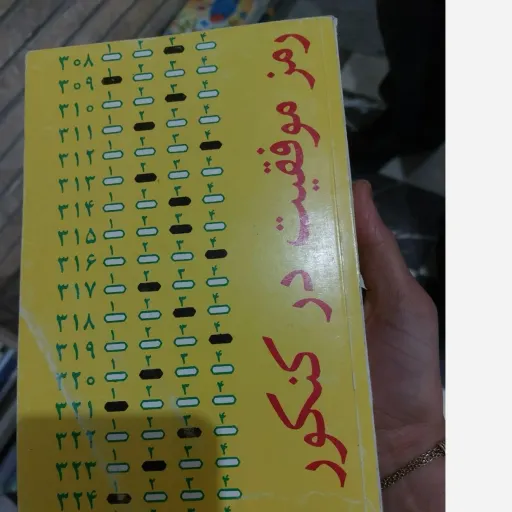 رمز موفقیت در کنکور
۳۰۸ ۱ ۲ ۳ ۴
۳۰۹ ۱ ۲ ۳ ۴
۳۱۰ ۱ ۲ ۳ ۴
۳۱۱ ۱ ۲ ۳ ۴
۳۱۲ ۱ ۲ ۳ ۴
۳۱۳ ۱ ۲ ۳ ۴
۳۱۴ ۱ ۲ ۳ ۴
۳۱۵ ۱ ۲ ۳ ۴
۳۱۶ ۱ ۲ ۳ ۴
۳۱۷ ۱ ۲ ۳ ۴
۳۱۸ ۱ ۲ ۳ ۴
۳۱۹ ۱ ۲ ۳ ۴
۳۲۰ ۱ ۲ ۳ ۴
۳۲۱ ۱ ۲ ۳ ۴
۳۲۲ ۱ ۲ ۳ ۴
۳۲۳ ۱ ۲ ۳ ۴
۳۲۴ ۱ ۲ ۳ ۴